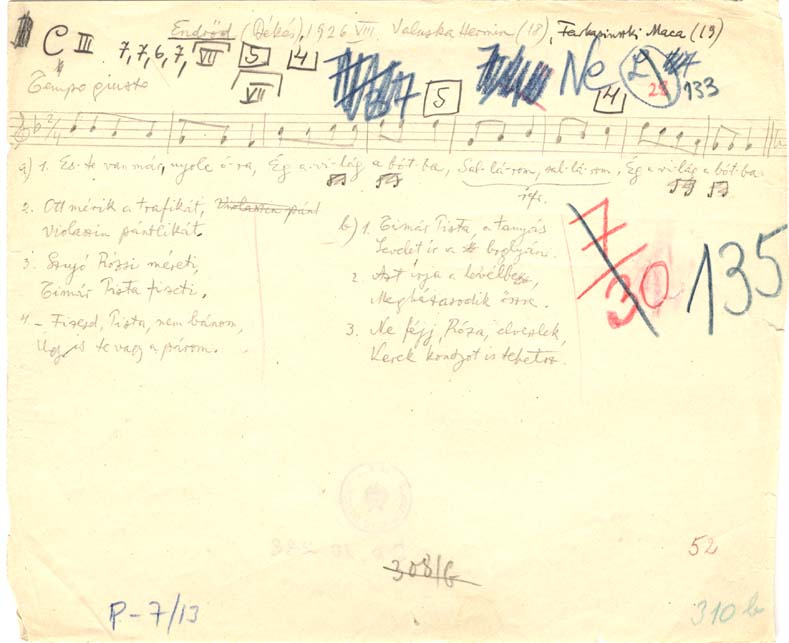 Endrőd (Békés), 1926 VII. Valuska Hermin (18), Farkasinszki Maca (19)
C III 7, 7, 6, 7, VII 5 4
VII 5 4 Ne 28 133
Tempo giusto
2/4
a) 1. Es-te van már, nyolc ó-ra, Ég a vi-lág a bót-ba, Sal-lá-rom, sal-lá-rom, Ég a világ a bótba.
2. Ott mérik a trafikát,
violaszin pántlikát.
3. Szujó Rózsi méreti,
Timár Pista fizeti.
4. Fizesd, Pista, nem bánom,
Ugy is te vagy a párom.
b) 1. Timár Pista, a tanyás
Levelet ír a boglyán.
2. Azt írja a levélbe,
Megházasodik őszre.
3. Ne félj, Róza, elveszlek,
Kerek kontyot is tehetsz.
7/30
135
308/G
52
P-7/13
310 b